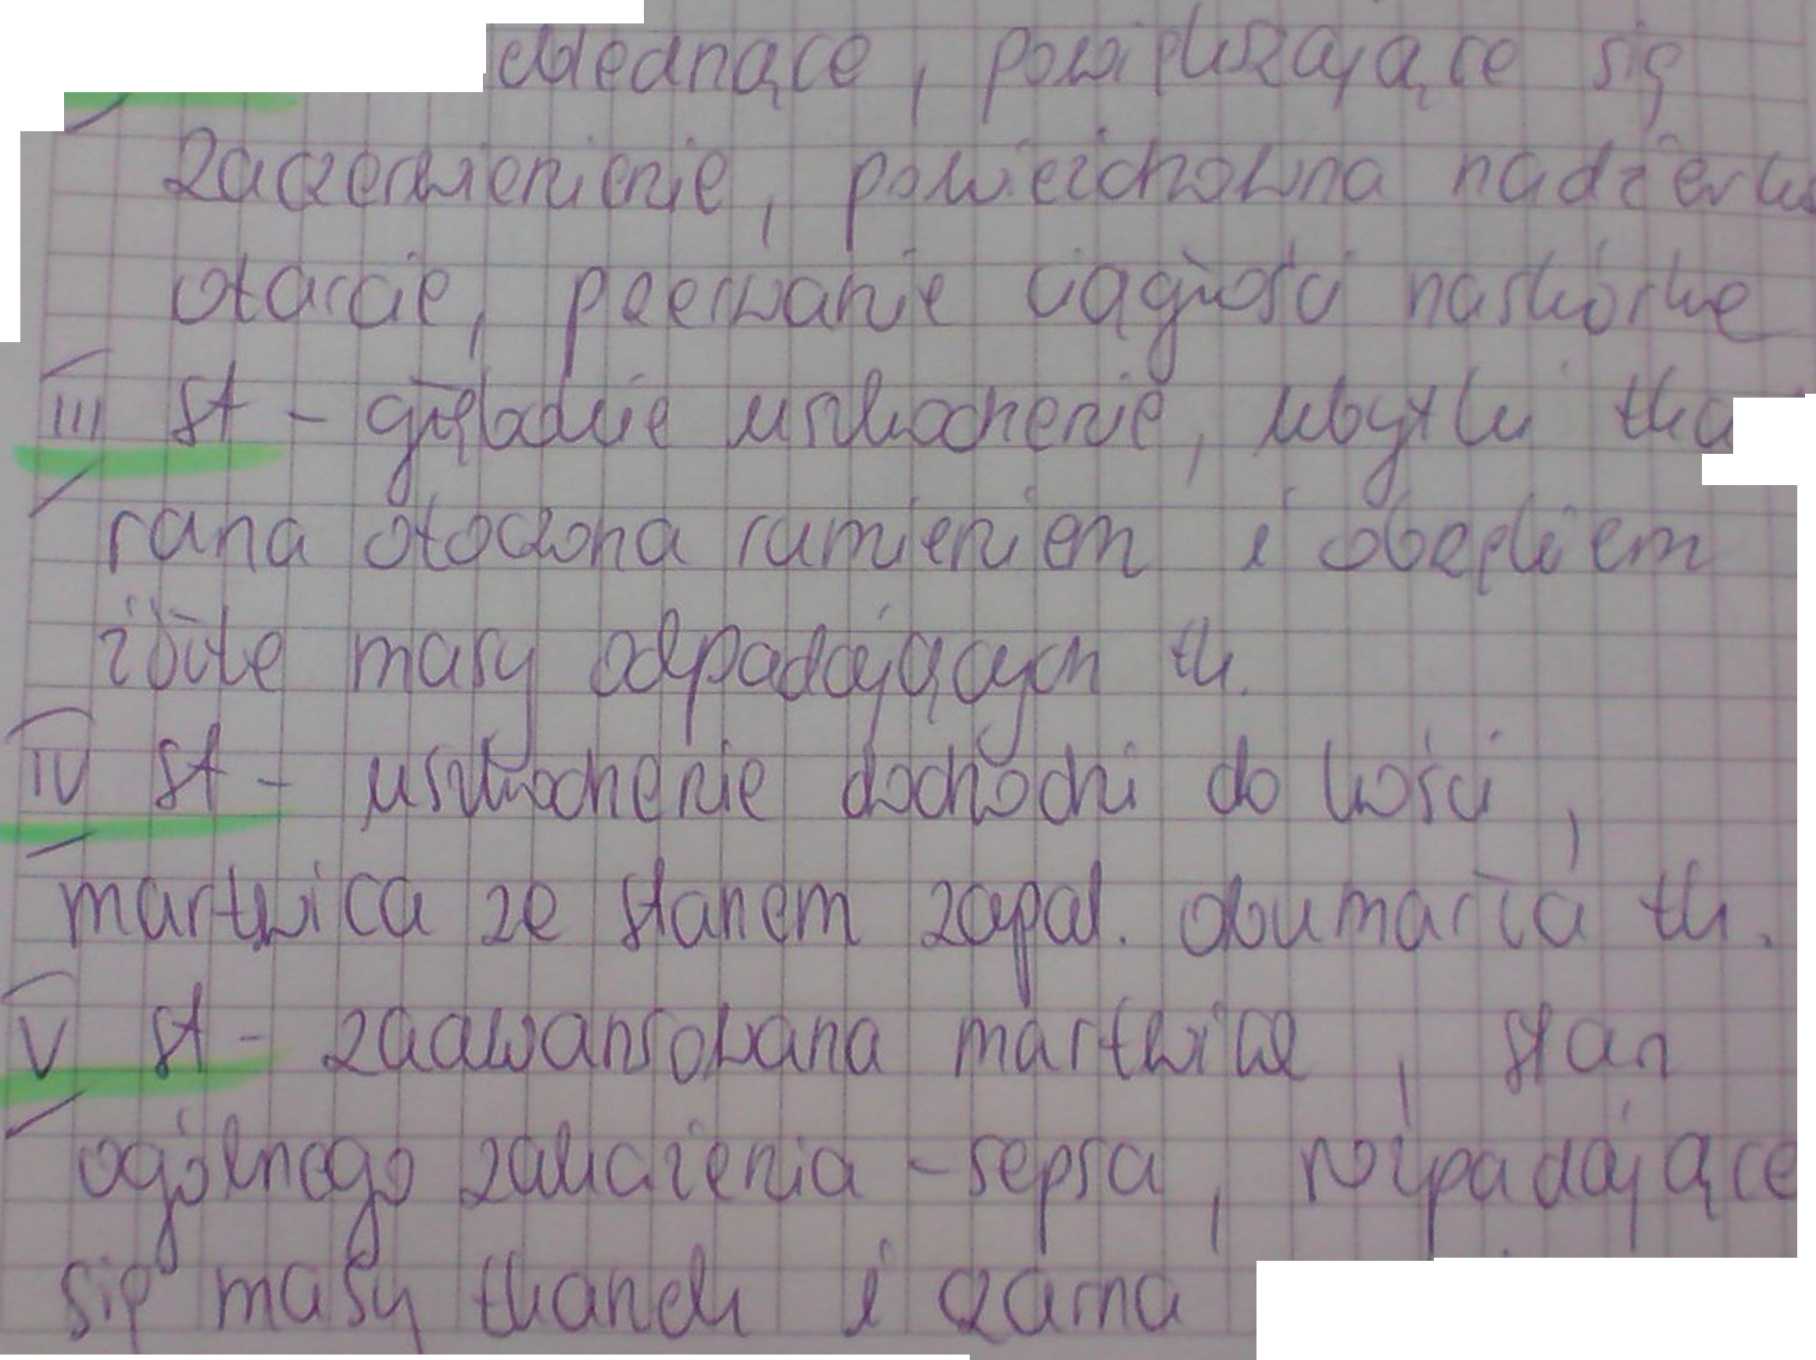 blednące, powiększające się
zaczerwienienie, powierzchowna nadżerka
otarcie, przerwanie ciągłości naskórka
III st - głębokie uszkodzenie, ubytki tka
rana otoczona rumieniem i obrzękiem
żółte masy odpadających tk.
IV st - uszkodzenie dochodzi do kości,
martwica ze stanem zapal. obumarcia tk.
V st - zaawansowana martwica, stan
ogólnego zakażenia - sepsa, rozpadające
się masy tkanek i czarna